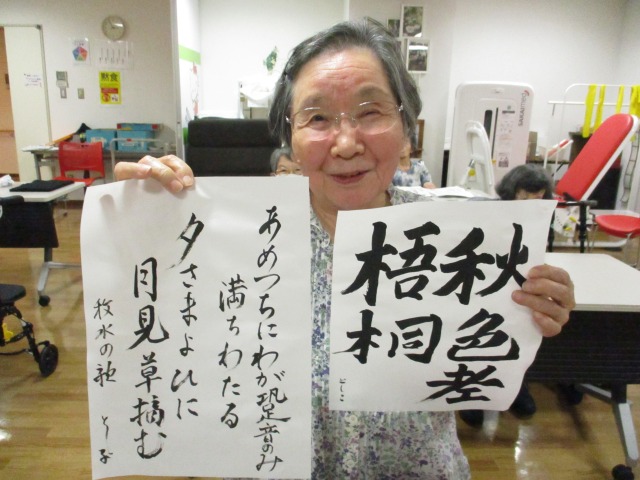 あめつちにわが跫音のみ
満ちわたる
夕さまよひに
月見草摘む
牧水の歌
とし子
秋色老
梧桐
としこ
黙食